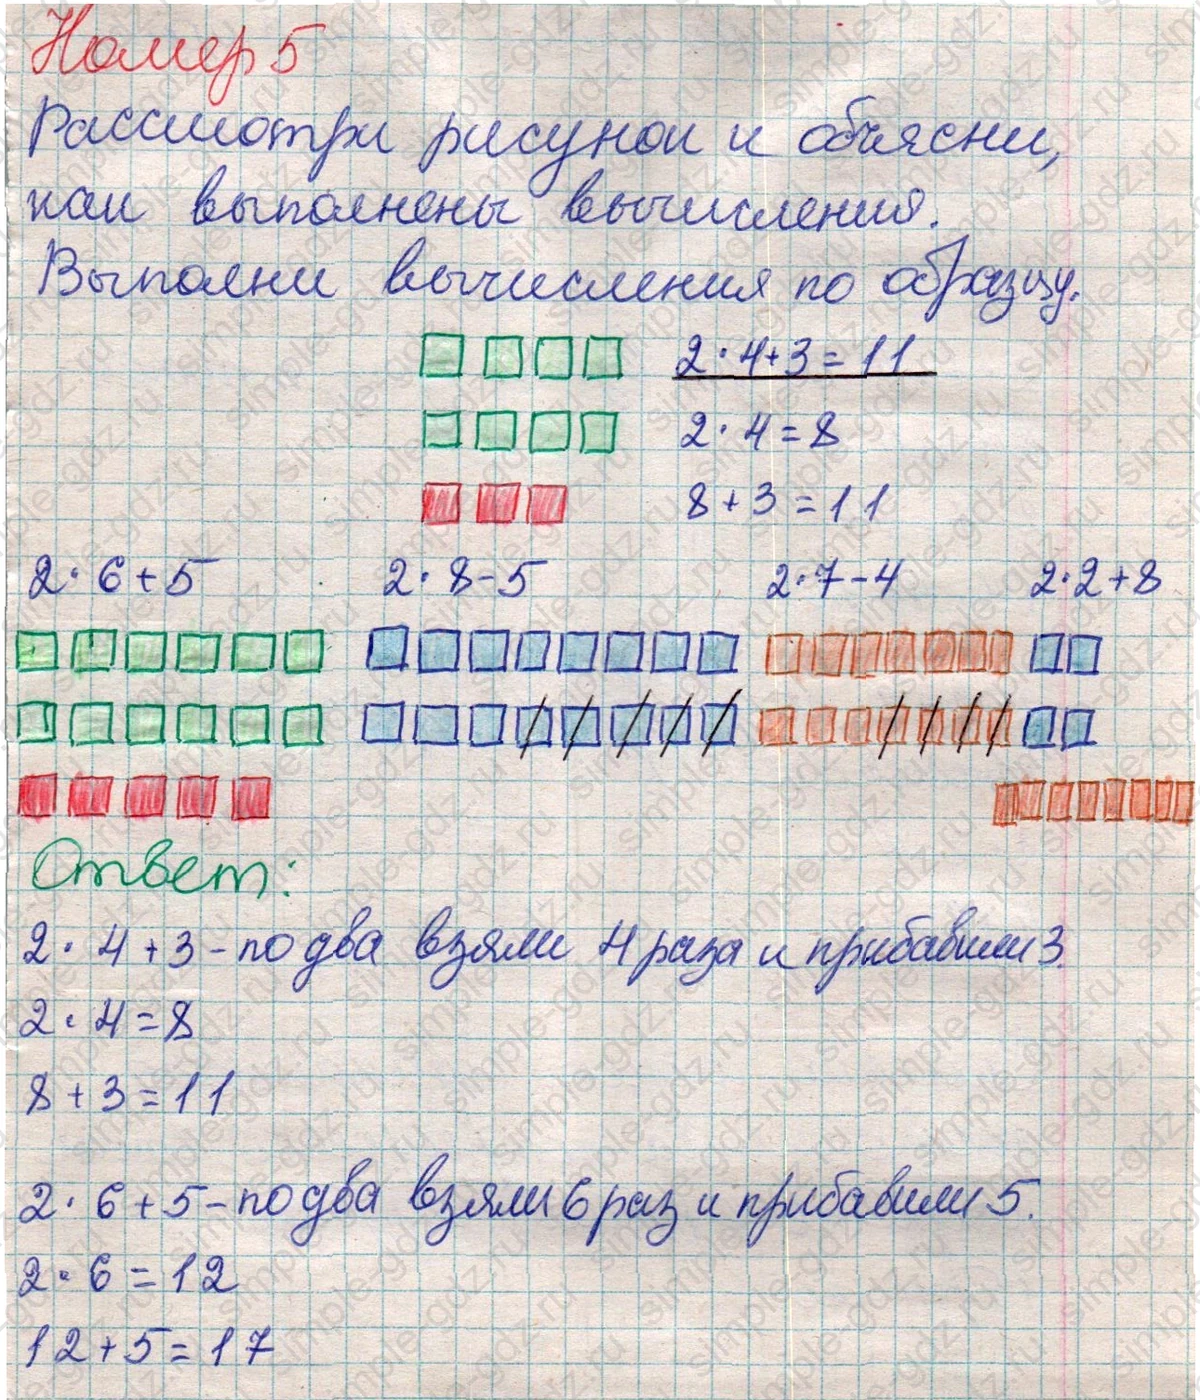 Номер 5
Рассмотри рисунок и объясни,
как выполнены вычисления.
Выполни вычисления по образцу.
2·4+3=11
2·4=8
8+3=11
2·6+5 2·8-5 2·7-4 2·2+8
Ответ:
2·4+3-по два взяли 4 раза и прибавили 3.
2·4=8
8+3=11
2·6+5-по два взяли 6 раз и прибавили 5.
2·6=12
12+5=17
simple-gdz.ru